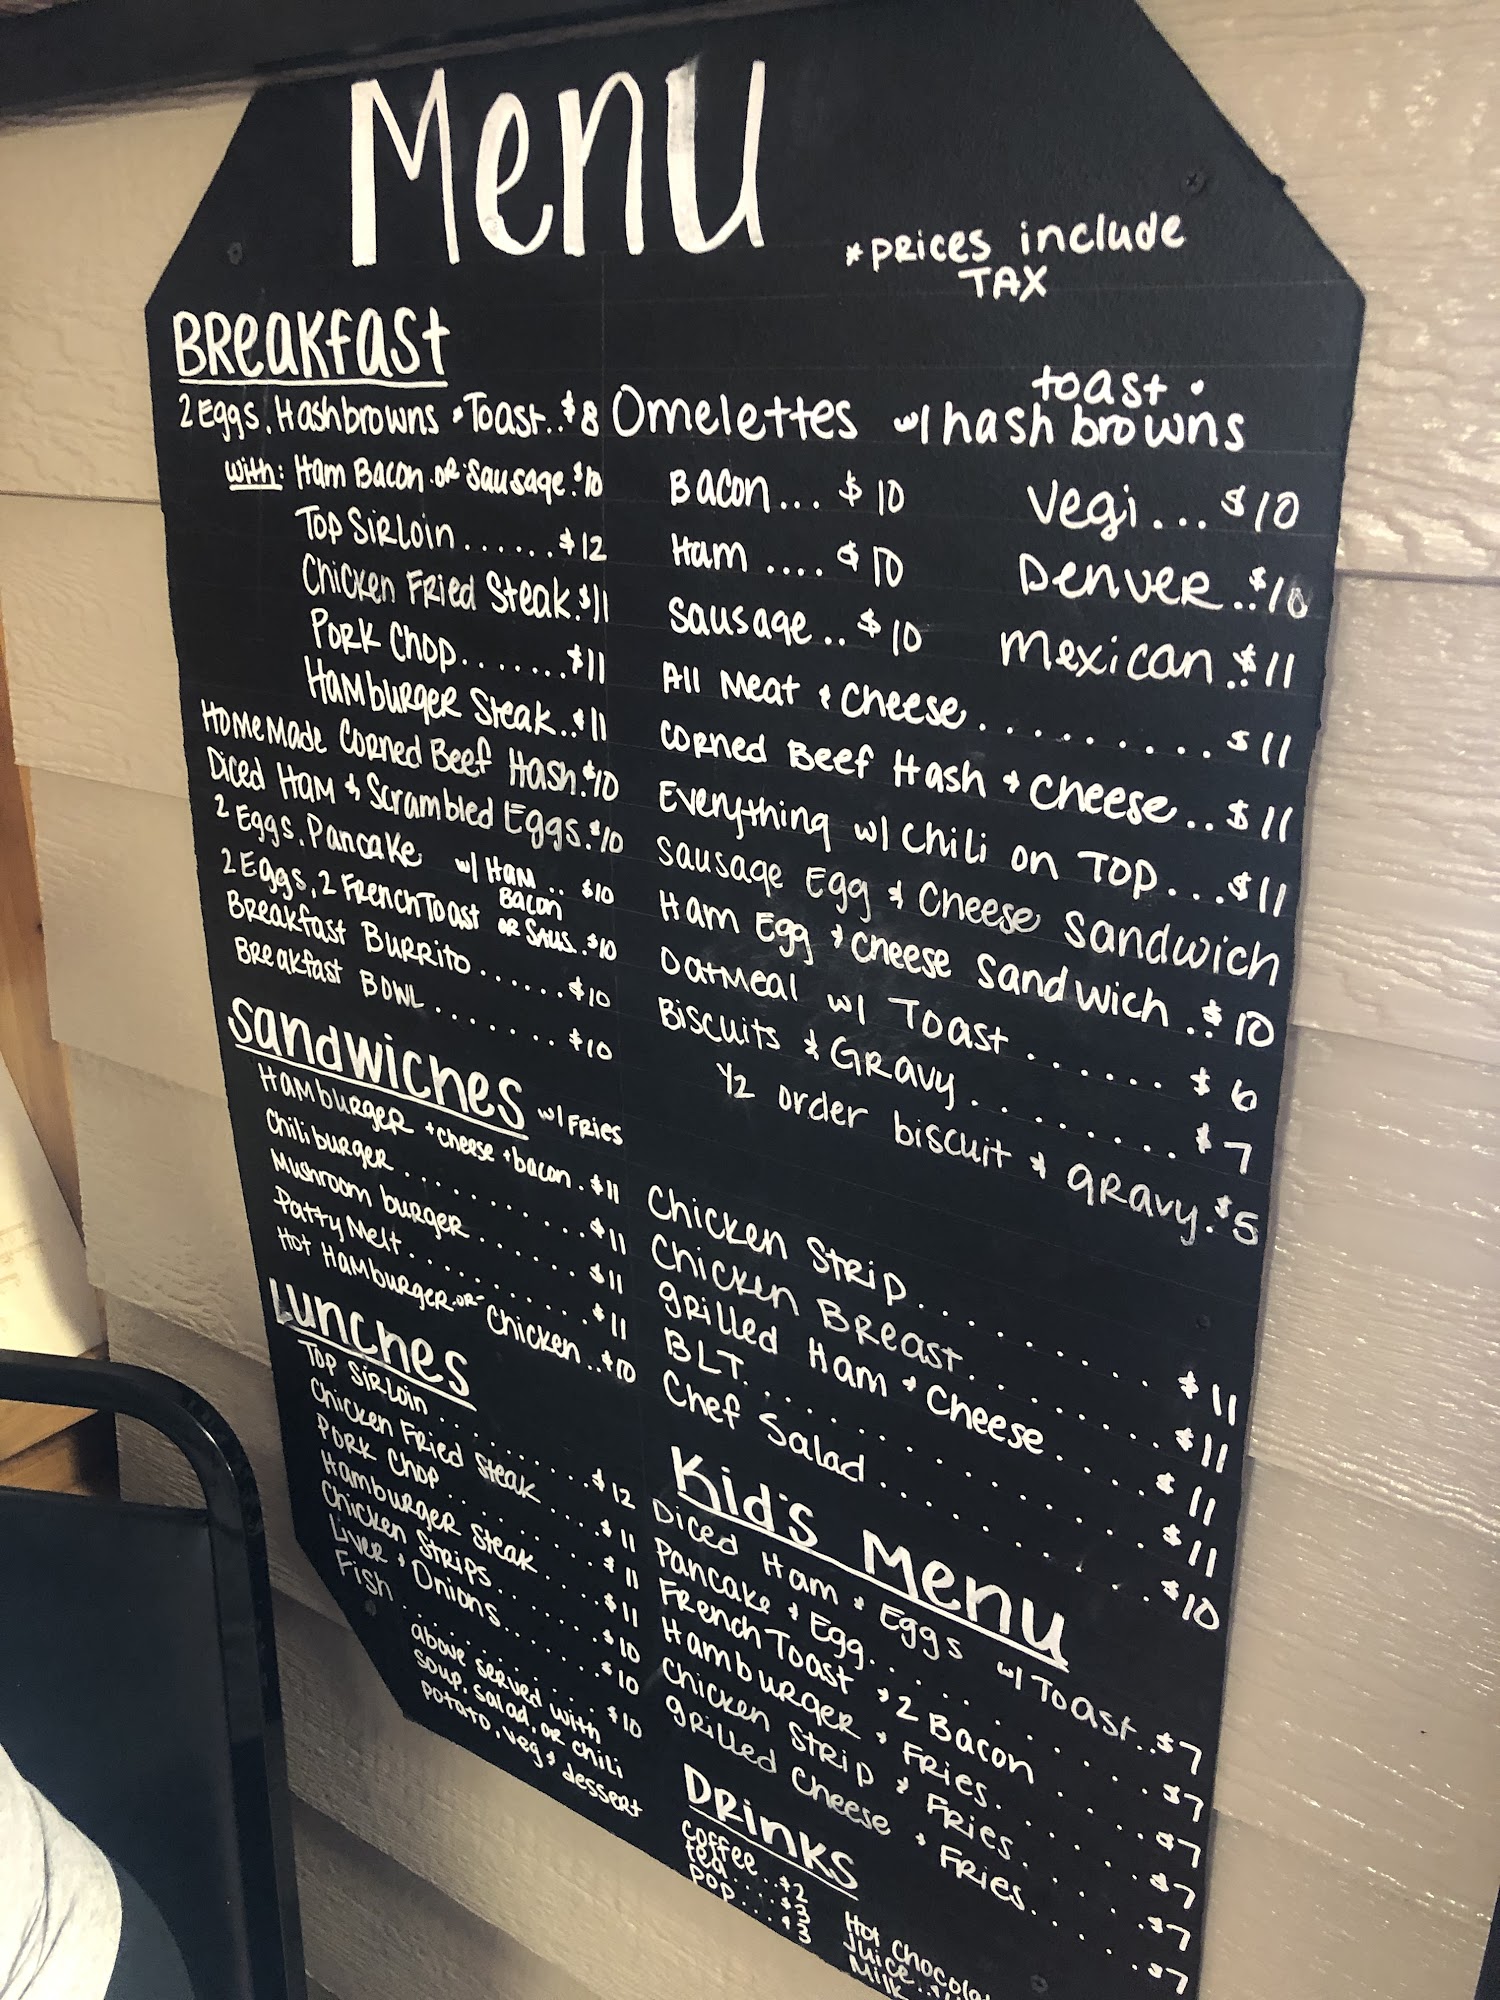 Menu
*Prices include
TAX
Breakfast
2 Eggs, Hashbrowns & Toast..$8
with: Ham Bacon or Sausage.$10
Top Sirloin......$12
Chicken Fried Steak.$11
Pork Chop.......$11
Hamburger Steak..$11
Homemade Corned Beef Hash.$10
Diced Ham & Scrambled Eggs.$10
2 Eggs, Pancake w/ Ham .. $10
Bacon
2 Eggs, 2 French Toast or Saus..$10
Breakfast Burrito......$10
Breakfast Bowl.........$10
toast &
Omelettes w/ hash browns
Bacon... $10
Ham .... $10
Sausage.. $10
Vegi... $10
Denver..$10
Mexican..$11
All Meat & Cheese..........$11
Corned Beef Hash & Cheese..$11
Everything w/ Chili on Top...$11
Sausage Egg & Cheese Sandwich
Ham Egg & Cheese Sandwich.$10
Oatmeal w/ Toast ...... $6
Biscuits & Gravy........$7
1/2 order biscuit & gravy.$5
Sandwiches w/ Fries
Hamburger + cheese + bacon.$11
Chiliburger...........$11
Mushroom burger.......$11
Patty Melt..........$11
Hot Hamburger or Chicken..$10
Chicken Strip.........$11
Chicken Breast........$11
Grilled Ham & Cheese....$11
BLT..............$11
Chef Salad..........$10
Lunches
Top Sirloin.........$12
Chicken Fried Steak...$11
Pork Chop.........$11
Hamburger Steak....$11
Chicken Strips......$10
Liver & Onions......$10
Fish..........$10
above served with
soup, salad, or chili
potato, veg & dessert
Kid's Menu
Diced Ham & Eggs w/ Toast..$7
Pancake & Egg..........$7
French Toast & 2 Bacon....$7
Hamburger & Fries.......$7
Chicken Strip & Fries.....$7
Grilled Cheese & Fries.....$7
Drinks
coffee..$2
tea....$3
pop....$3
Hot Chocola
Juice
Milk